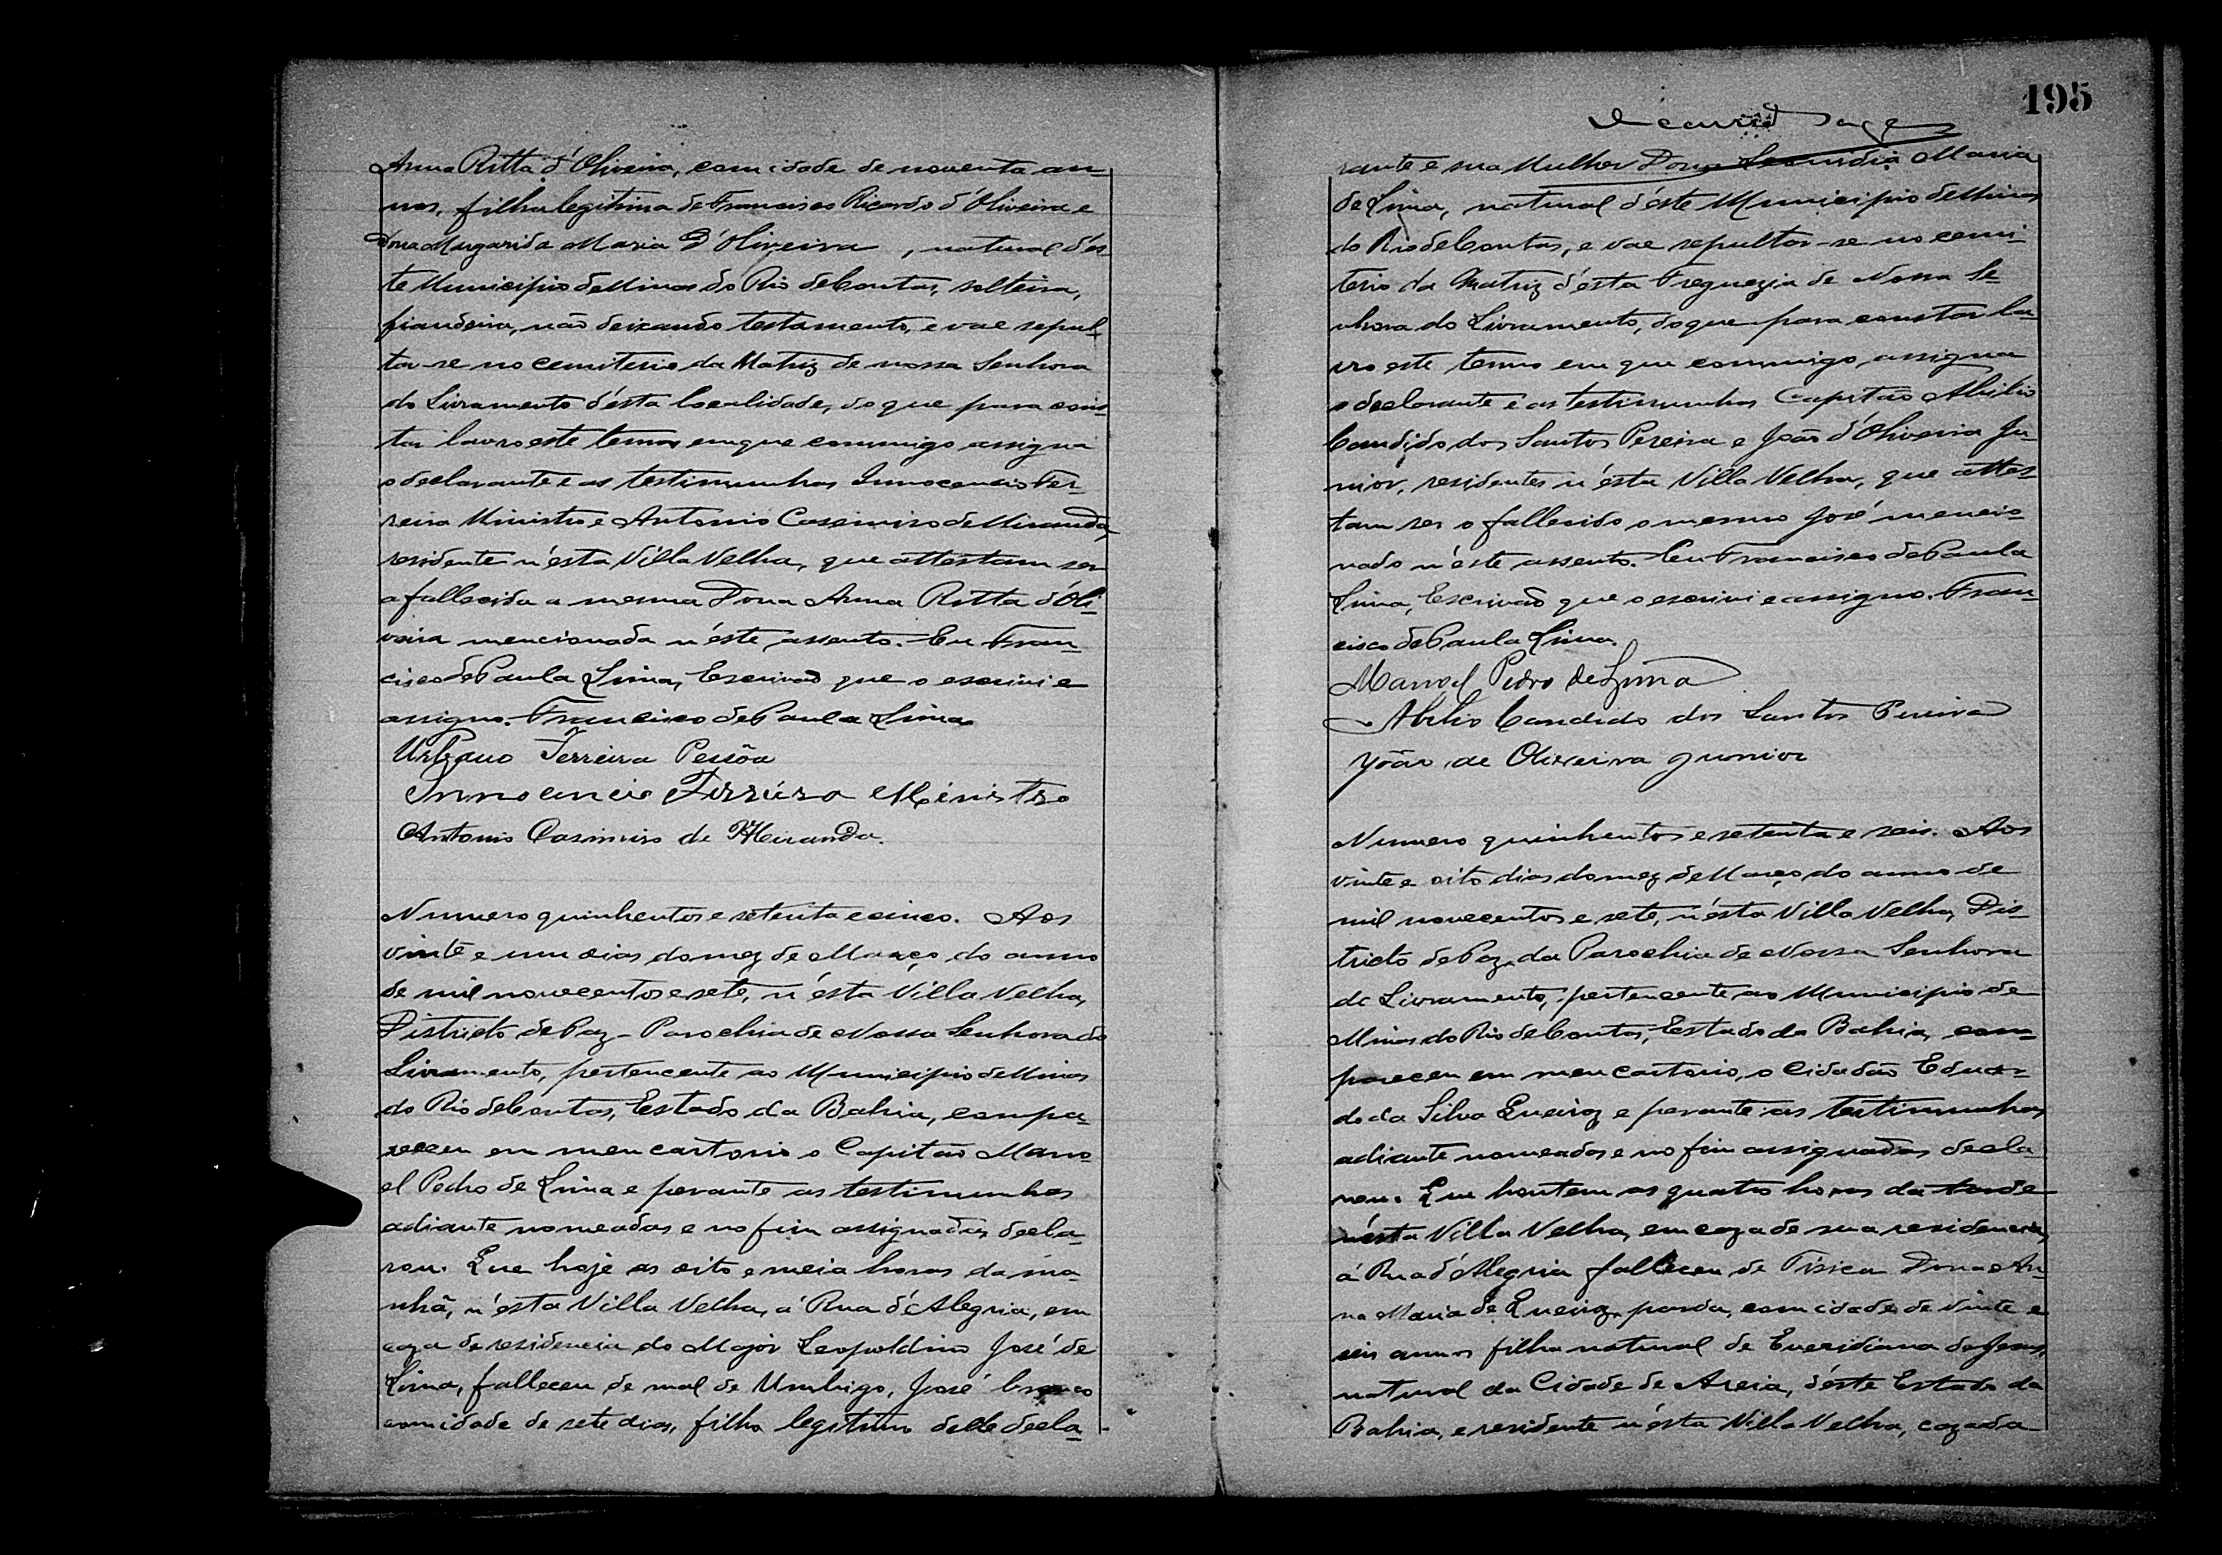 Anna Ritta d'Oliveira, com idade de noventa an-
nos, filha legitima de Francisco Ricardo d'Oliveira e
Dona Margarida Maria d'Oliveira, natural d'es-
te Municipio de Minas do Rio de Contas, solteira,
fiandeira, não deixando testamento, e vae sepul-
tar-se no cemiterio da Matriz de nossa Senhora
do Livramento d'ésta localidade, do que para cons-
tar lavro este termo em que commigo assigna
o declarante e as testimunhas Innocencio Fer-
reira Ministro e Antonio Casemiro de Miranda,
residente n'ésta Villa Velha, que attestam ser
a fallecida a mesma Dona Anna Ritta d'Oli-
veira mencionada n'éste assento. Eu Fran-
cisco de Paula Lima, Escrivaõ que o escrivi e
assigno. Francisco de Paula Lima
Urbano Ferreira Pessôa
Innocencio Ferreira Ministro
Antonio Casimiro de Miranda.
Numero quinhentos e setenta e cinco. Aos
vinte e um dias do mez de Março do anno
de mil novecentos e sete, n'ésta Villa Velha,
Districto de Paz - Parochia de Nossa Senhora do
Livramento, pertencente ao Municipio de Minas
do Rio de Contas, Estado da Bahia, compa-
receu em meu cartorio o Capitão Mano-
el Pedro de Lima e perante as testimunhas
adiante nomeadas e no fim assignadas decla-
rou. Que hoje as oito e meia horas da ma-
nhã, n'ésta Villa Velha, á Rua d'Alegria, em
caza de residencia do Major Leopoldino José de
Lima, falleceu de mal de Umbigo, José branco
com idade de sete dias, filho legitimo delle decla-
195
rante e sua Mulher Dona Leonidia Maria
de Lima, natural d'éste Municipio de Minas
do Rio de Contas, e vae sepultar-se no cemi-
terio da Matriz d'ésta Freguezia de Nossa Se-
nhora do Livramento, do que para constar la-
vro este termo em que commigo assigna
o declarante e as testimunhas Capitão Abilio
Candido dos Santos Pereira e João d'Oliveira Ju-
nior, residentes n'ésta Villa Velha, que attes-
tam ser o fallecido o mesmo José mencio-
nado n'éste assento. Eu Francisco de Paula
Lima, Escrivaõ que o escrivi e assigno. Fran-
cisco de Paula Lima.
Manoel Pedro de Lima
Abilio Candido dos Santos Pereira
João de Oliveira Junior
Numero quinhentos e setenta e seis. Aos
vinte e oito dias do mez de Março do anno de
mil novecentos e sete, n'ésta Villa Velha, Dis-
tricto de Paz da Parochia de Nossa Senhora
do Livramento, pertencente ao Municipio de
Minas do Rio de Contas, Estado da Bahia, com-
pareceu em meu cartorio, o Cidadão Eduar-
do da Silva Queiroz e perante as testimunhas
adiante nomeadas e no fim assignadas decla-
rou. Que hontem as quatro horas da tarde
n'ésta Villa Velha, em caza de sua residencia,
á Rua d'Alegria falleceu de Tisica Dona An-
na Maria de Queiroz, parda, com idade de vinte e
seis annos filha natural de Eueridiana de Jesus,
natural da Cidade de Areia, d'éste Estado da
Bahia, e residente n'ésta Villa Velha, cazada